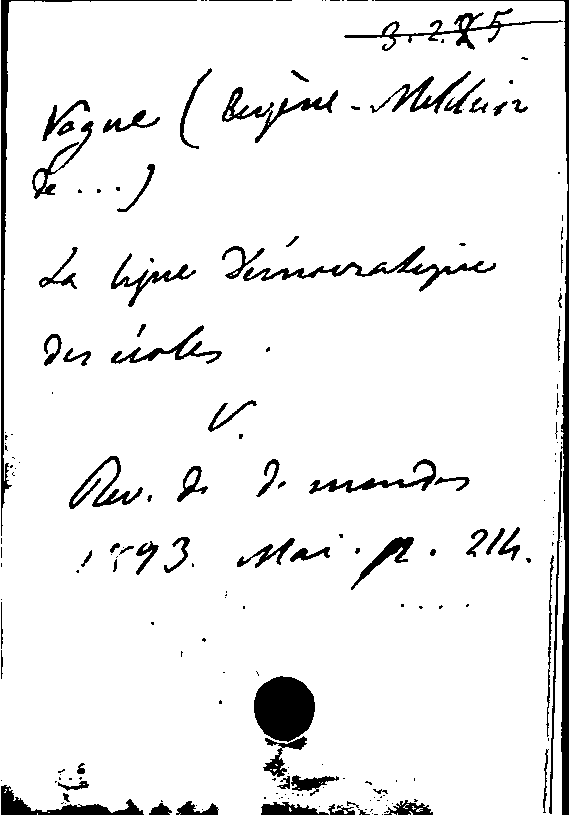 3.2.75
Vogue (Eugène-Melchior
de ...)
La ligue démocratique
des écoles.
V.
Rev. de d. mondes
1893. Mai. p. 214.